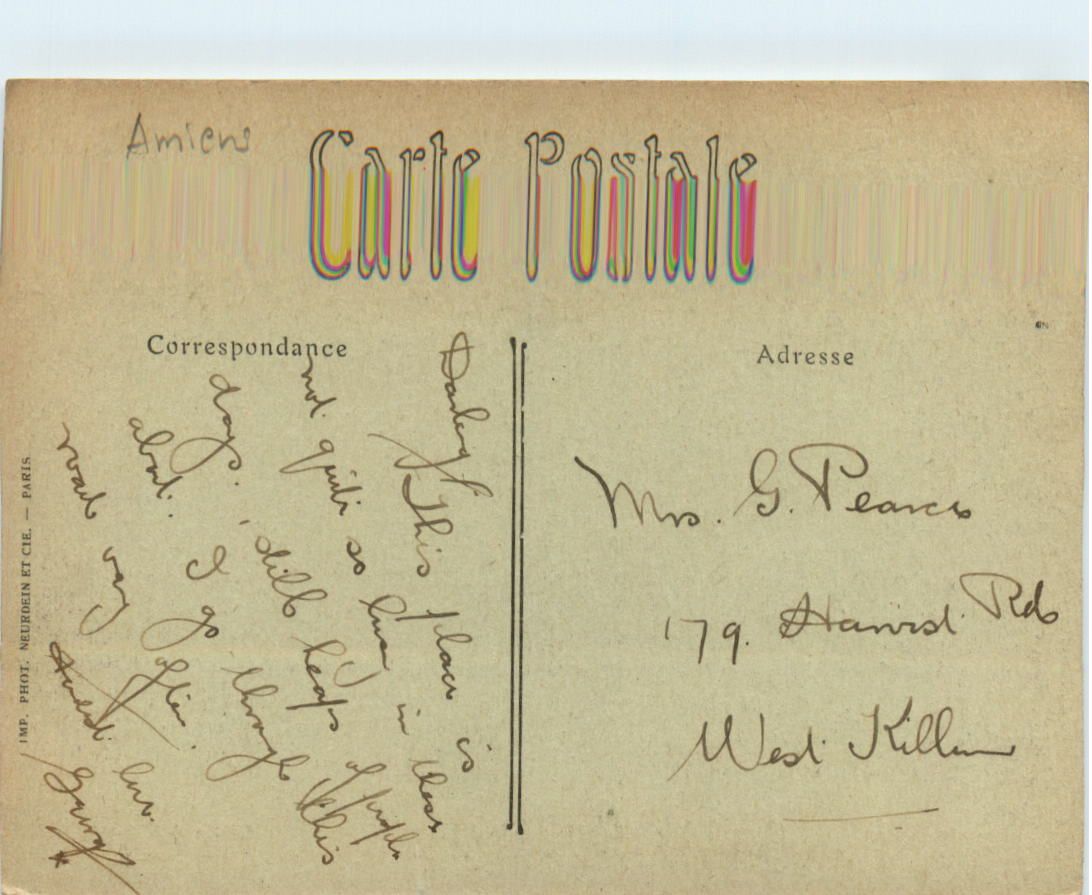 Amiens
Carte Postale
Correspondance
Adresse
Darling This place is
not quite so busy in these
days. still heaps of people
about. I go through this
road very often.
Fondest love
Mrs. G. Pearce
179. Harvist Rd
West Kilburn
IMP. PHOT. NEURDEIN ET CIE. — PARIS